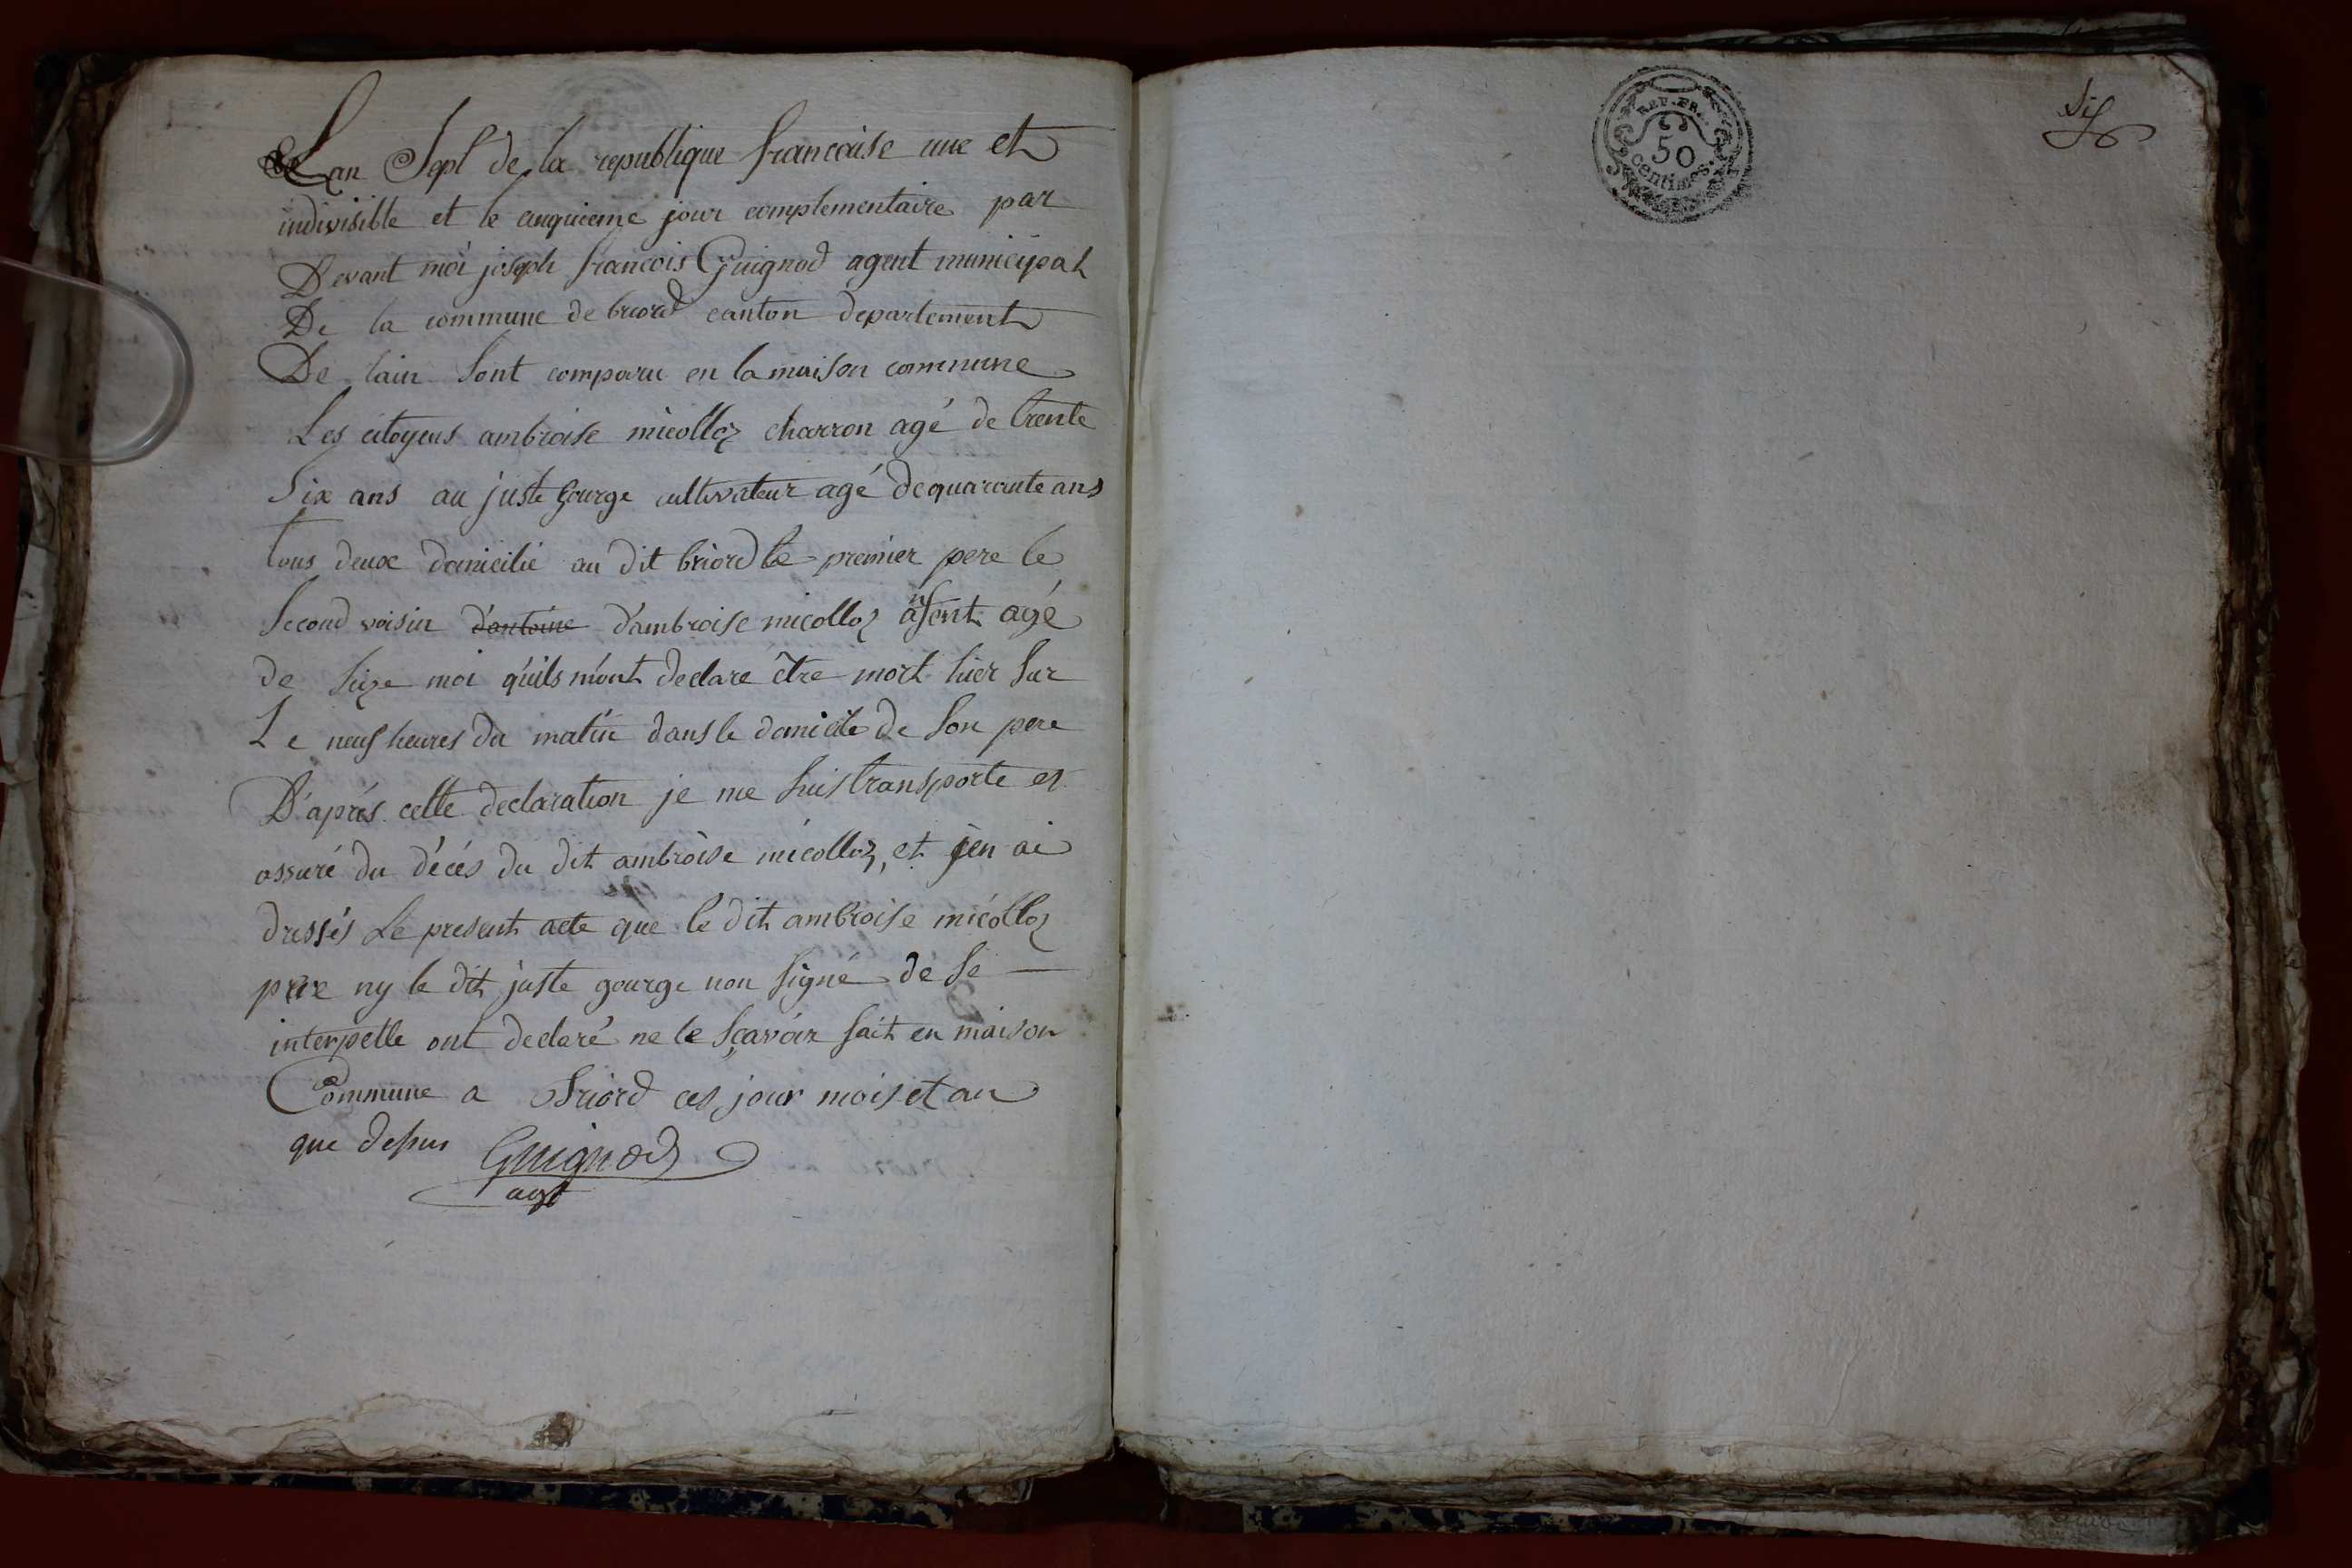 Lan Sept de la republique francaise une et
indivisible et le cinquieme jour complementaire par
Devant moi joseph francois Guignod agent municipal
De la commune de briord canton departement
De lain sont comparu en la maison commune
Les citoyens ambroise micolloz charron agé de trente
Six ans au juste gourge cultivateur agé de quarante ans
tous deux domicilié au dit briord le premier pere le
Second voisin d'antoine d'ambroise micolloz anfent agé
de Seize moi qu'ils m'ont declare être mort hier sur
Le neuf heures du matin dans le domicile de son pere
D'aprés cette declaration je me suis transporte et
assuré du décés du dit ambroise micolloz, et jen ai
dressés Le present acte que le dit ambroise micolloz
pere ny le dit juste gourge non signé de se
interpelle ont declaré ne le sçavoir fait en maison
Commune a Briord ces jour mois et an
que desus Guignod
agt
REP. FRA.
50
centimes.